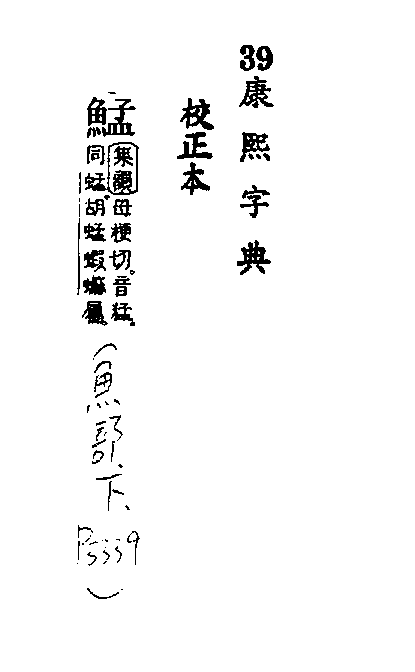 39康熙字典
校正本
䱋
集韻母梗切。音猛。
同蜢。胡蜢蝦蟇屬。
(魚部、下、P5339)